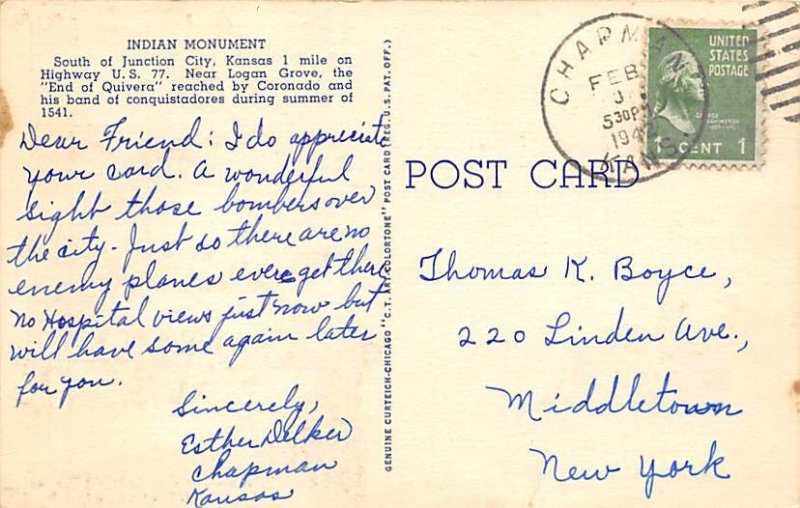 INDIAN MONUMENT
South of Junction City, Kansas 1 mile on
Highway U.S. 77. Near Logan Grove, the
"End of Quivera" reached by Coronado and
his band of conquistadores during summer of
1541.
Dear Friend: I do appreciate
your card. A wonderful
sight those bombers over
the city. Just so there are no
enemy planes ever get there
no Hospital views just now but
will have some again later
for you.
Sincerely,
Esther Delker
Chapman
Kansas
GENUINE CURTEICH-CHICAGO "C.T. ART-COLORTONE" POST CARD (REG. U.S. PAT. OFF.)
CHAPMAN
FEB
530PM
194
KANS
UNITED
STATES
POSTAGE
GEORGE
WASHINGTON
1 CENT 1
POST CARD
Thomas K. Boyce,
220 Linden Ave.,
Middletown
New York